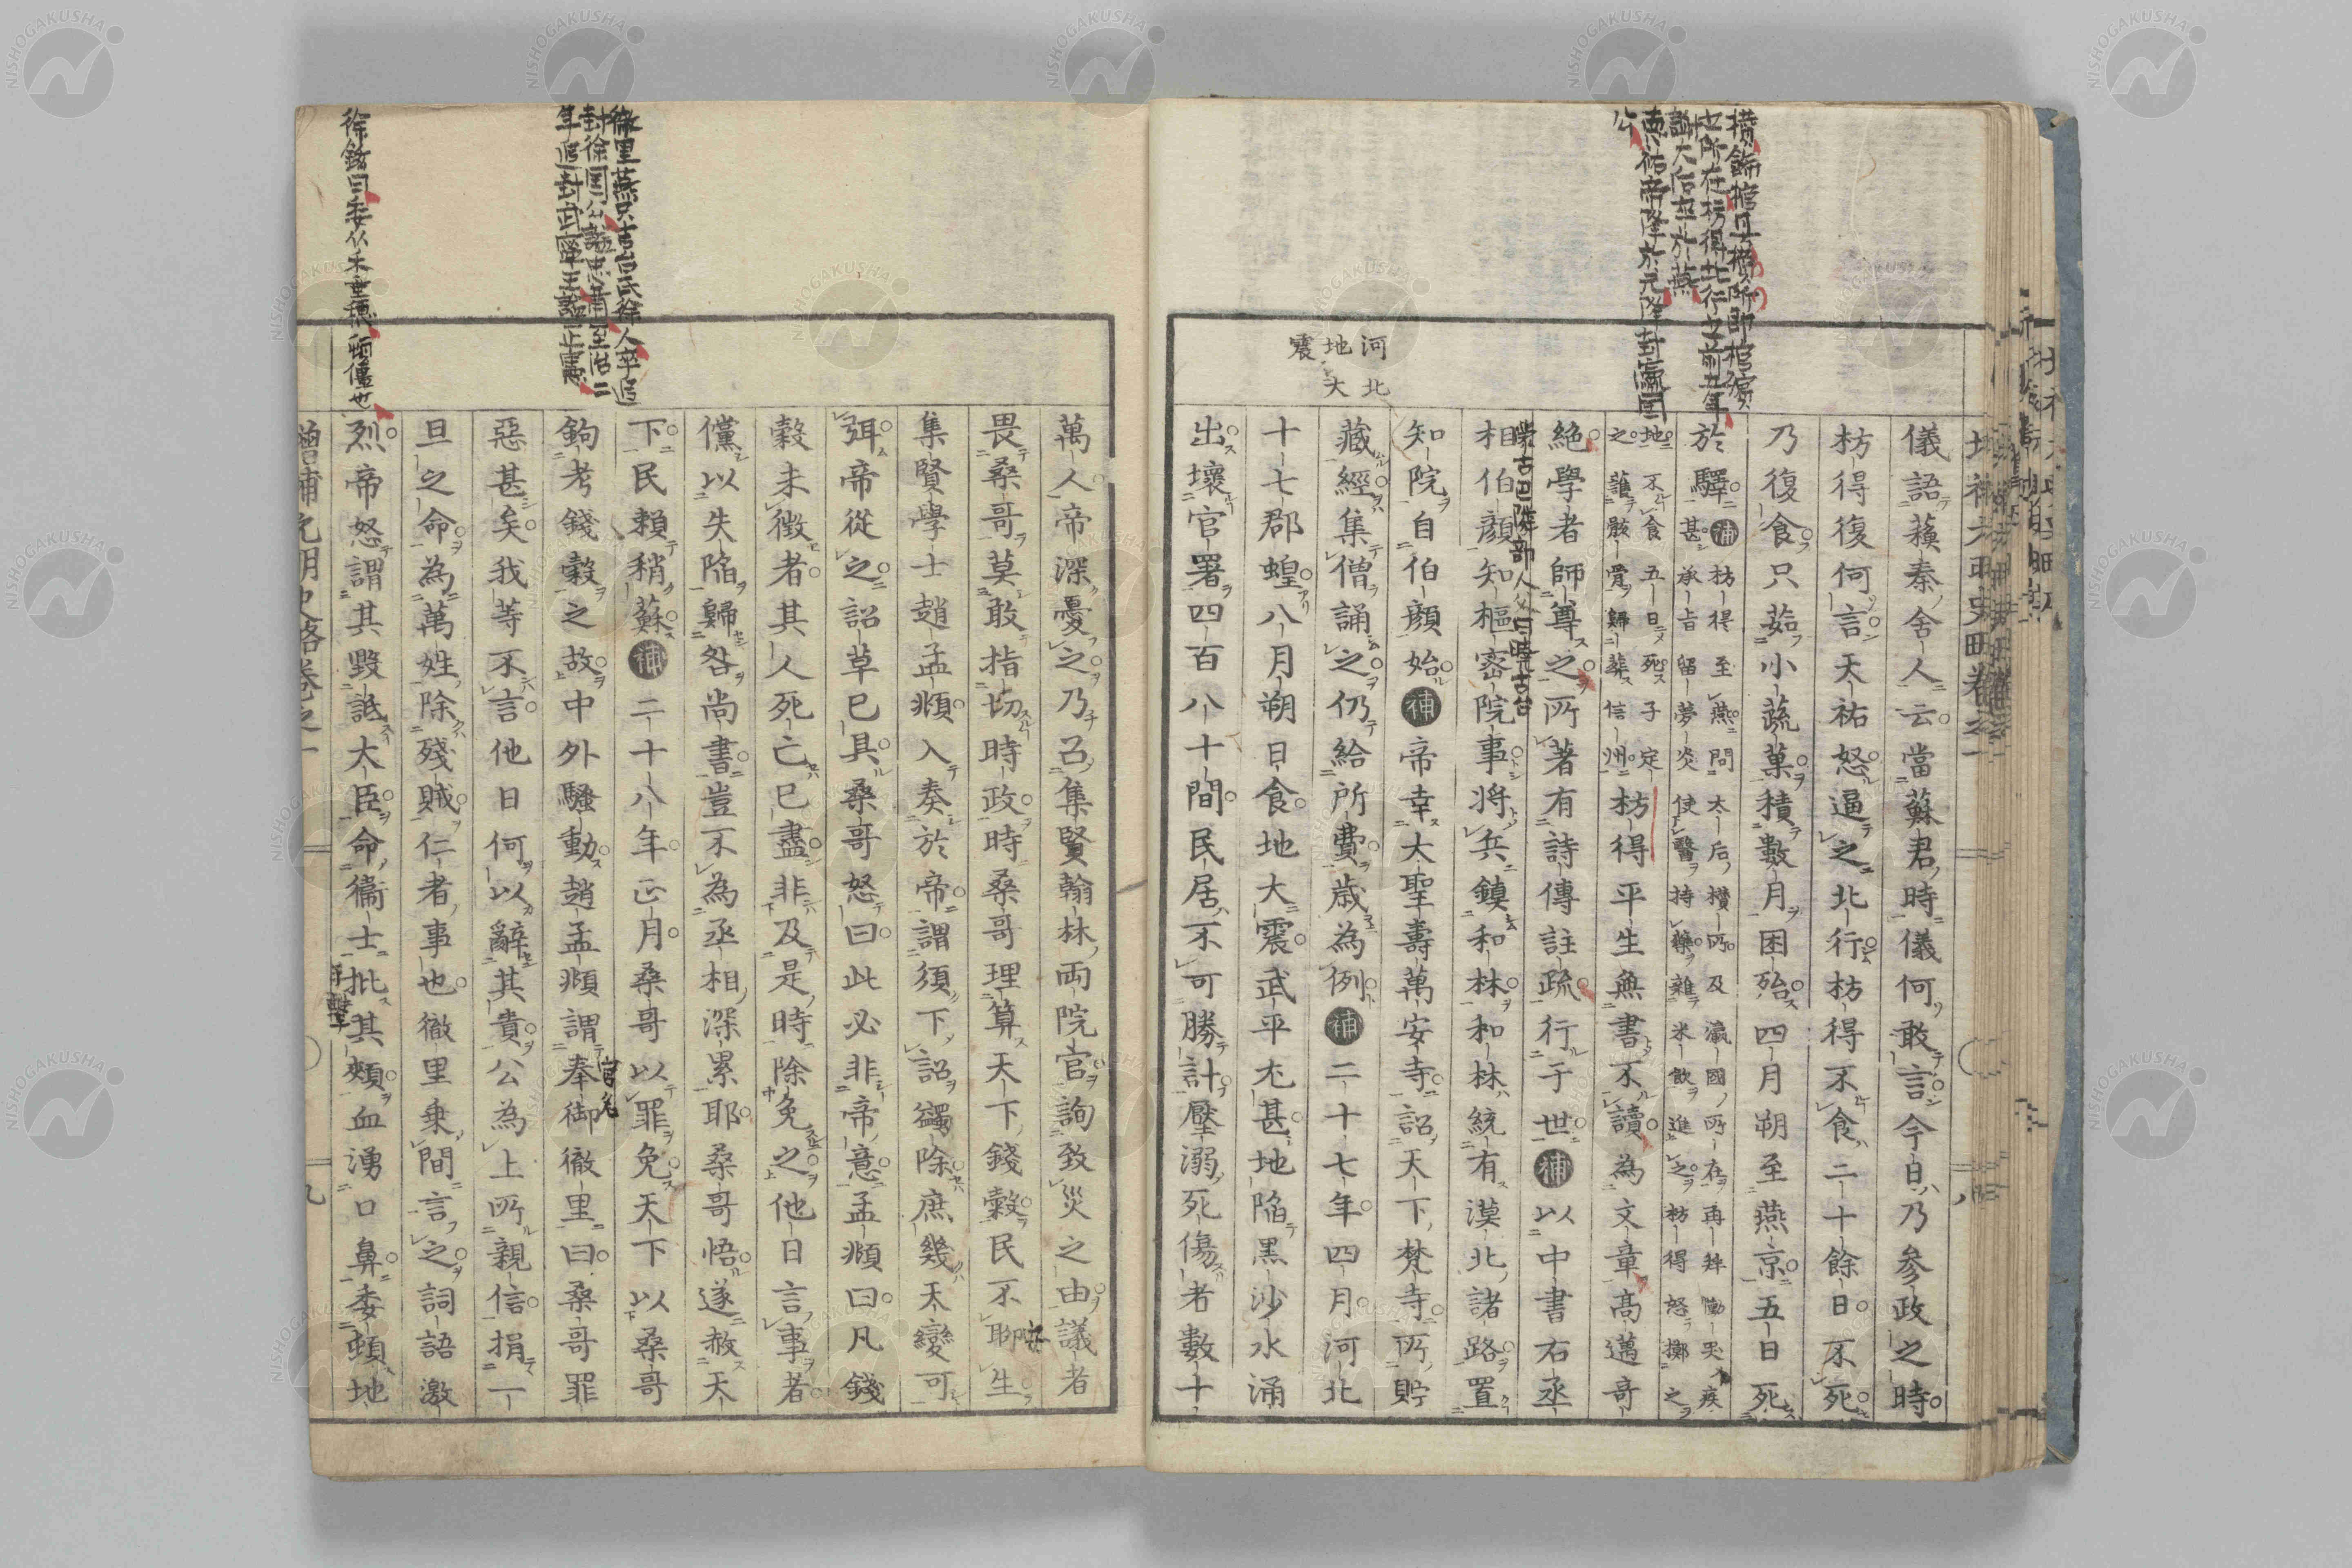 儀語蘓秦舎人云當蘇君時儀何敢言今日乃参政之時
枋得復何言天祐怒逼之北行枋得不食二十餘日不死
乃復食只茹小蔬菓積數月困殆四月朔至燕京五日死
於驛補枋得至燕問太后欑所及瀛國所在再拜慟哭疾
甚承旨留夢炎使醫持藥雜米飲進之枋得怒擲之
地不食五日死子定
之護骸骨歸葬信州枋得平生無書不讀為文章高邁奇
絶學者師尊之所著有詩傳註疏行于世補以中書右丞
相伯顔知樞密院事将兵鎮和林和林統有漠北諸路置
知院自伯顔始補帝幸大聖壽萬安寺詔天下梵寺所貯
藏經集僧誦之仍給所費歳為例補二十七年四月河北
十七郡蝗八月朔日食地大震武平尤甚地陷黒沙水涌
出壊官署四百八十間民居不可勝計壓溺死傷者數十
河北
地大
震
蒙古巴隣部人父曰暁古台
萬人帝深憂之乃召集賢翰林両院官詢致災之由議者
畏桑哥莫敢指切時政時桑哥理算天下錢穀民不聊生
集賢學士趙孟頫入奏於帝謂須下詔蠲除庶幾天變可
弭帝從之詔草已具桑哥怒曰此必非帝意孟頫曰凡錢
穀未徴者其人死亡已盡非及是時除免之他日言事者
儻以失陷歸咎尚書豈不為丞相深累耶桑哥悟遂赦天
下民頼稍蘇補二十八年正月桑哥以罪免天下以桑哥
鉤考錢穀之故中外騒動趙孟頫謂奉御徹里曰桑哥罪
惡甚矣我等不言他日何以辭其責公為上所親信捐一
旦之命為萬姓除殘賊仁者事也徹里乗間言之詞語激
烈帝怒謂其毀詆大臣命衞士批其頰血湧口鼻委頓地
増補元明史略巻之一
九
官名
手撃
安
徹里燕只吉台氏徐人卒追
封徐國公諡忠肅至治二
年追封武寧王諡正憲